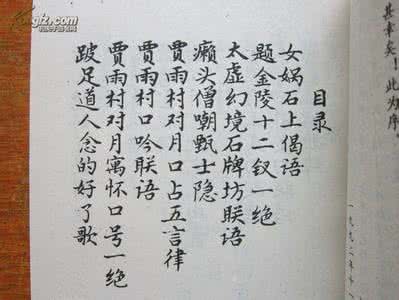 目录
女娲石上偈语
题金陵十二钗一绝
太虚幻境石牌坊联语
癞头僧嘲甄士隐
贾雨村对月口占五言律
贾雨村口吟联语
贾雨村对月寓怀口号一绝
跛足道人念的好了歌
其幸矣！此为序